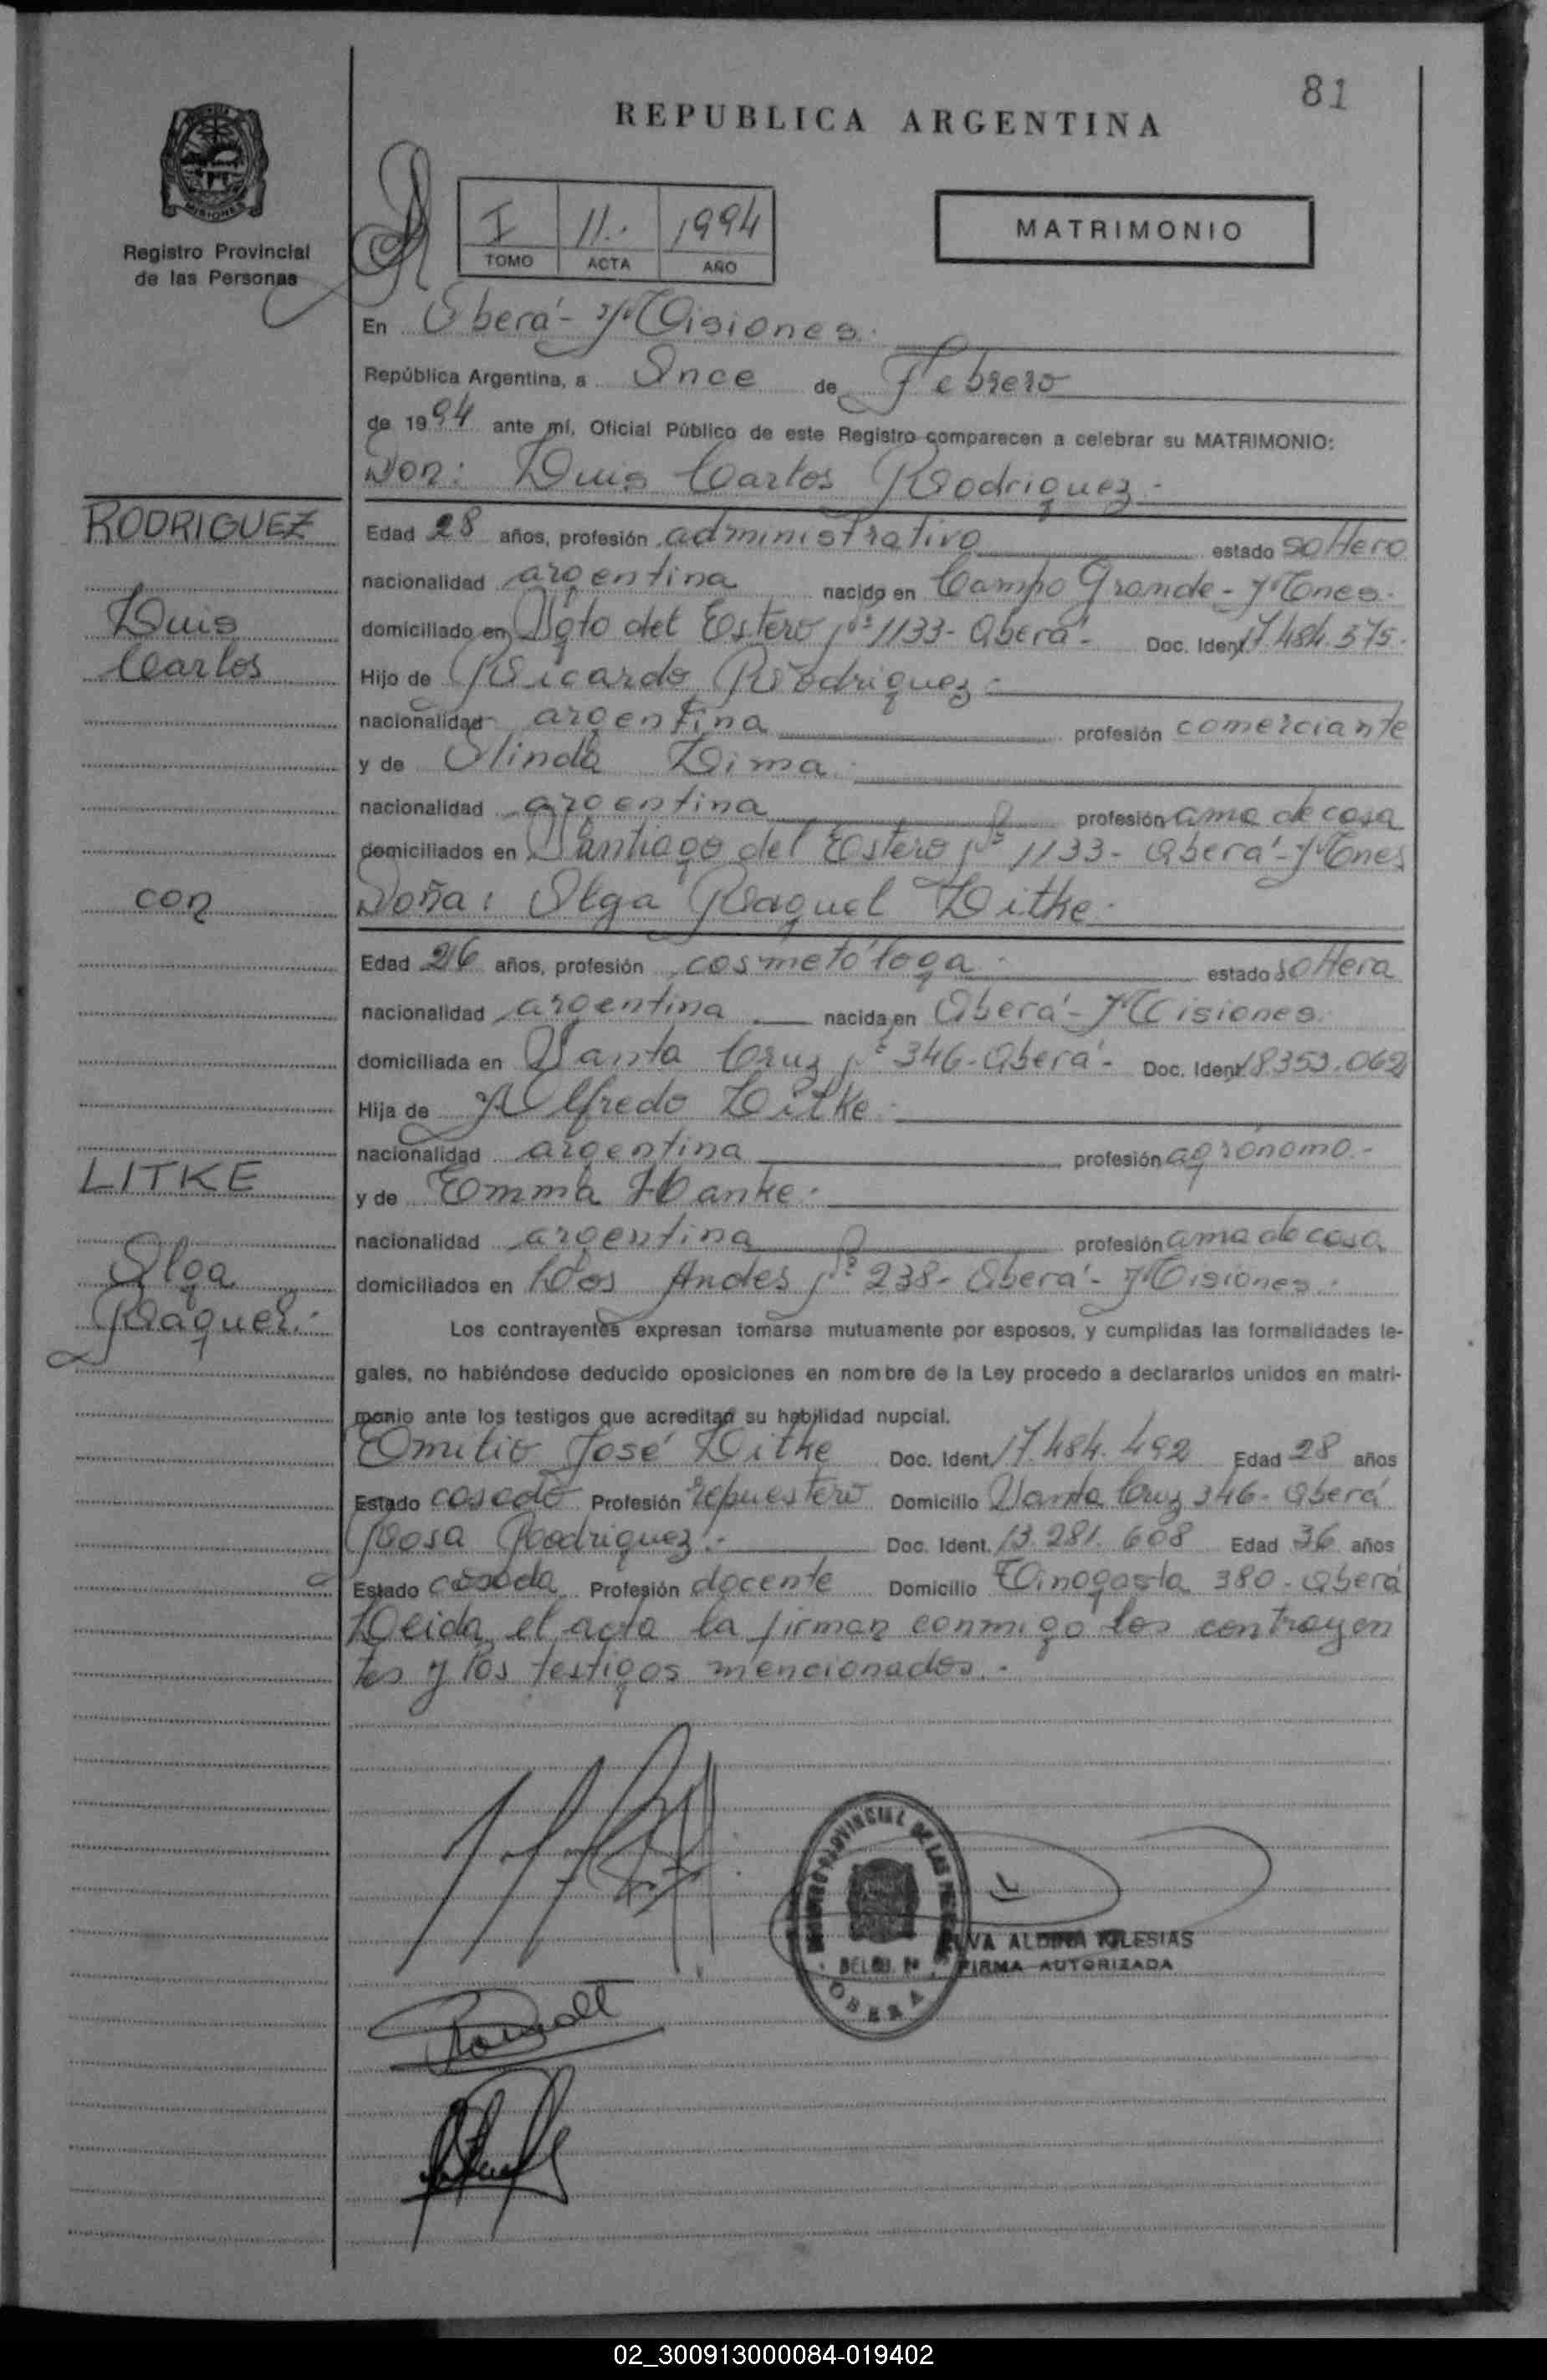 81
REPUBLICA ARGENTINA
MISIONES
Registro Provincial
de las Personas
I 11.. 1994
TOMO ACTA AÑO
MATRIMONIO
En Oberá - Misiones.
República Argentina, a Once de Febrero
de 1994 ante mí, Oficial Público de este Registro comparecen a celebrar su MATRIMONIO:
Don: Luis Carlos Rodriguez.-
RODRIGUEZ
Luis
Carlos
Edad 28 años, profesión administrativo estado soltero
nacionalidad argentina nacido en Campo Grande - Mnes.
domiciliado en Sgto del Estero Nº 1133 - Oberá - Doc. Ident. 17.484.375.
Hijo de Ricardo Rodriguez.-
nacionalidad argentina profesión comerciante
y de Olinda Lima.
nacionalidad argentina profesión ama de casa
domiciliados en Santiago del Estero Nº 1133 - Oberá - Mnes
con
Doña: Olga Raquel Litke.
Edad 26 años, profesión cosmetóloga. estado soltera
nacionalidad argentina nacida en Oberá - Misiones.
domiciliada en Santa Cruz Nº 346 - Oberá - Doc. Ident. 18353.062
Hija de Alfredo Litke.
nacionalidad argentina profesión agrónomo.-
LITKE
Olga
Raquel.-
y de Emma Hanke.
nacionalidad argentina profesión ama de casa
domiciliados en Los Andes Nº 238 - Oberá - Misiones.
Los contrayentes expresan tomarse mutuamente por esposos, y cumplidas las formalidades le-
gales, no habiéndose deducido oposiciones en nombre de la Ley procedo a declararlos unidos en matri-
monio ante los testigos que acreditan su habilidad nupcial.
Emilio José Litke Doc. Ident. 17.484.492 Edad 28 años
Estado casado Profesión repuestero Domicilio Santa Cruz 346 - Oberá
Rosa Rodriguez.- Doc. Ident. 13.281.608 Edad 36 años
Estado casada Profesión docente Domicilio Tinogasta 380 - Oberá
Leida el acta la firman conmigo los contrayen
tes y los testigos mencionados.-
REGISTRO PROVINCIAL DE LAS
OBERA
ALDINA IGLESIAS
FIRMA AUTORIZADA
02_300913000084-019402